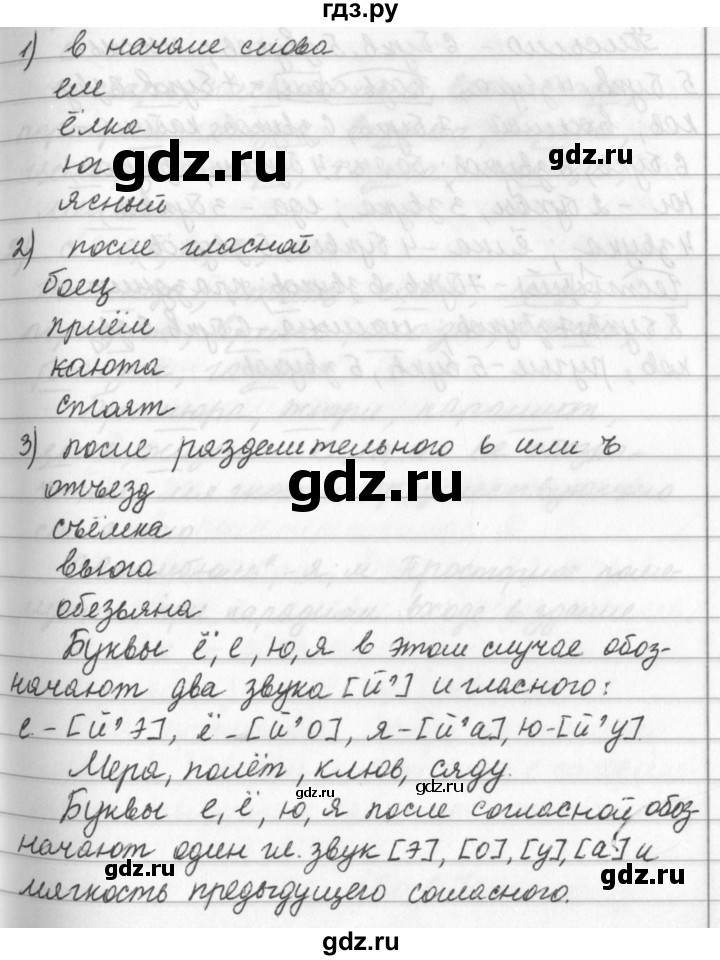 гдз.ру
1) в начале слова
ем
ёлка
юг
gdz.ru
gdz.ru
ясный
2) после гласной
боец
приём
каюта
стоят
3) после разделительного ь или ъ
отъезд
gdz.ru
съёмка
вьюга
обезьяна
Буквы ё, е, ю, я в этом случае обоз-
начают два звука [й'] и гласного:
е - [й'э], ё - [й'о], я - [й'а], ю - [й'у]
Мера, полёт, клюв, сяду.
gdz.ru
gdz.ru
Буквы е, ё, ю, я после согласной обоз-
начают один гл. звук [э], [о], [у], [а] и
gdz.ru
gdz.ru
мягкость предыдущего согласного.
gdz.ru